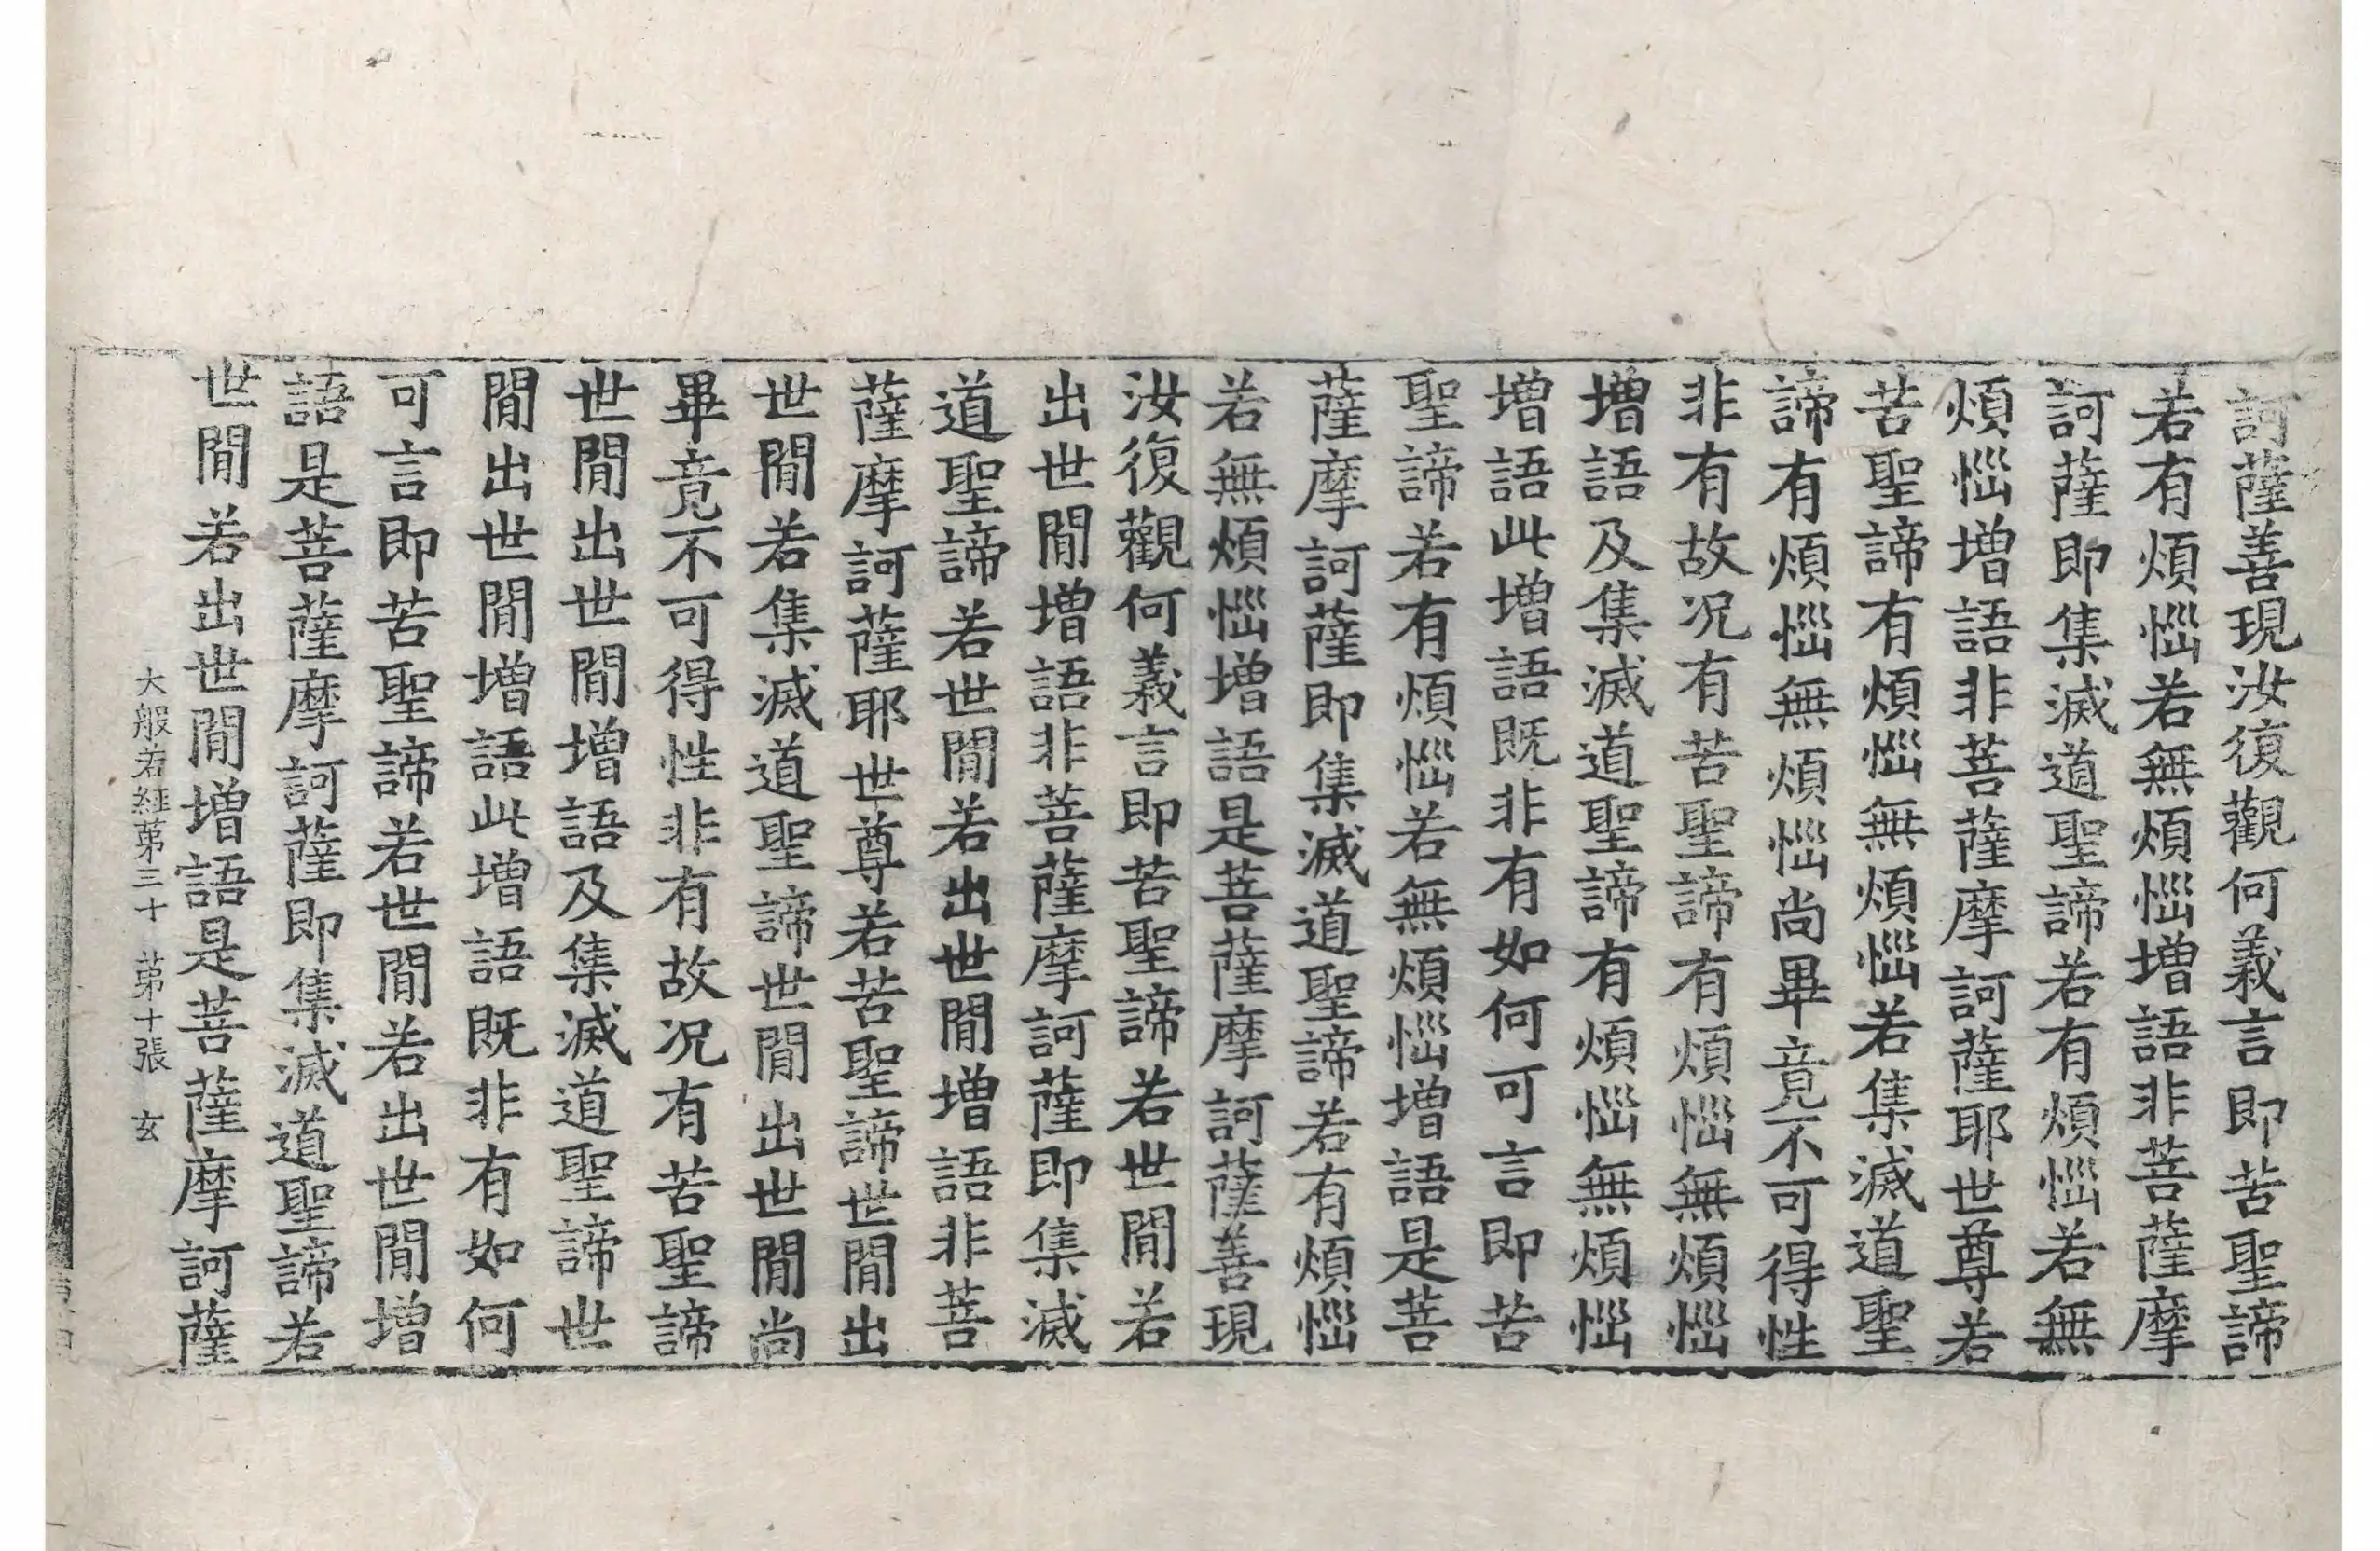 訶薩善現汝復觀何義言即苦聖諦
若有煩惱若無煩惱增語非菩薩摩
訶薩即集滅道聖諦若有煩惱若無
煩惱增語非菩薩摩訶薩耶世尊若
苦聖諦有煩惱無煩惱若集滅道聖
諦有煩惱無煩惱尚畢竟不可得性
非有故况有苦聖諦有煩惱無煩惱
增語及集滅道聖諦有煩惱無煩惱
增語此增語既非有如何可言即苦
聖諦若有煩惱若無煩惱增語是菩
薩摩訶薩即集滅道聖諦若有煩惱
若無煩惱增語是菩薩摩訶薩善現
汝復觀何義言即苦聖諦若世閒若
出世閒增語非菩薩摩訶薩即集滅
道聖諦若世閒若出世閒增語非菩
薩摩訶薩耶世尊若苦聖諦世閒出
世閒若集滅道聖諦世閒出世閒尚
畢竟不可得性非有故况有苦聖諦
世閒出世閒增語及集滅道聖諦世
閒出世閒增語此增語既非有如何
可言即苦聖諦若世閒若出世閒增
語是菩薩摩訶薩即集滅道聖諦若
世閒若出世閒增語是菩薩摩訶薩
大般若經第三十 第十張 玄